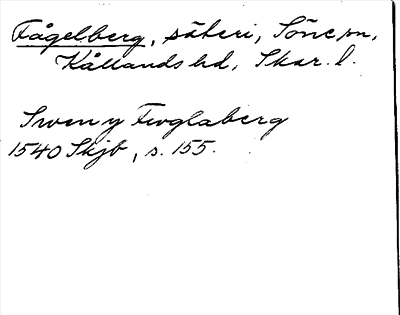 Fågelberg, säteri, Söne sn,
Kållands hd, Skar. l.
Swen y Fwglaberg
1540 Skjb, s. 155.